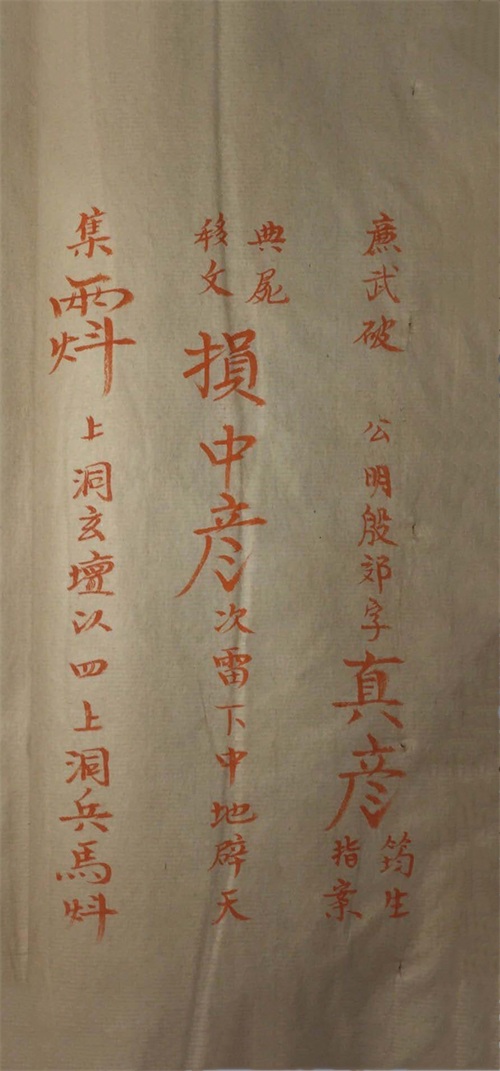 廉武破 公明殷郊字真彦筠生
指案
典屍
移文損中彦次雷下中地辟天
集兩炓上洞玄壇以四上洞兵馬炓